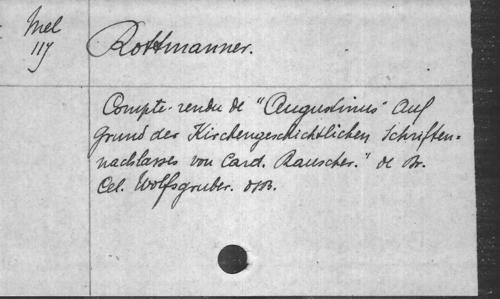 Mel
117
Rottmanner.
Compte-rendu de "Augustinus" auf
Grund des Kirchengeschichtlichen Schriften-
nachlasses von Card. Rauscher." de Dr.
Cel. Wolfsgruber. OSB.